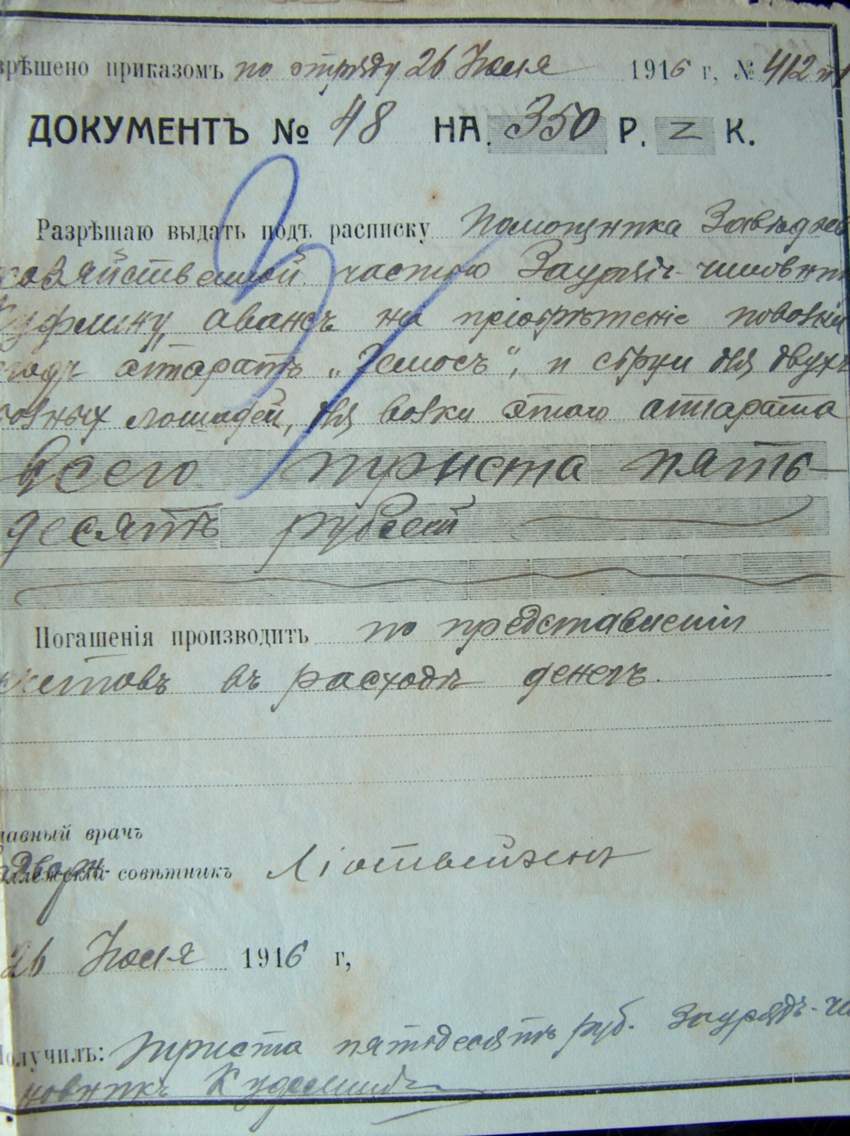 зрѣшено приказомъ по отряду 26 Іюля 1916 г, № 412
ДОКУМЕНТЪ № 48 НА 350 Р. z К.
Разрѣшаю выдать подъ расписку Помощника Завѣдующ
хозяйственной частью Зауряд-чиновник
аванс на пріобрѣтеніе повозки
под аппаратъ „Гелиосъ", и сбруи для двух
лошадей, для возки этого аппарата
всего триста пять-
десятъ рублей
Погашенія производитъ по представленіи
счетовъ въ расходѣ денегъ.
лавный врач
совѣтникъ
26 Іюля 1916 г,
Получилъ: Триста пятьдесятъ руб. Зауряд-чи
новникъ